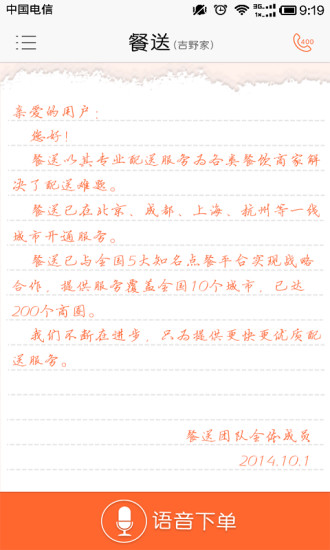 中国电信 3G 1X 2G 9:19
餐送(吉野家) 400
亲爱的用户：
您好！
餐送以其专业配送服务为各类餐饮商家解
决了配送难题。
餐送已在北京、成都、上海、杭州等一线
城市开通服务。
餐送已与全国5大知名点餐平台实现战略
合作，提供服务覆盖全国10个城市，已达
200个商圈。
我们不断在进步，只为提供更快更优质配
送服务。
餐送团队全体成员
2014.10.1
语音下单